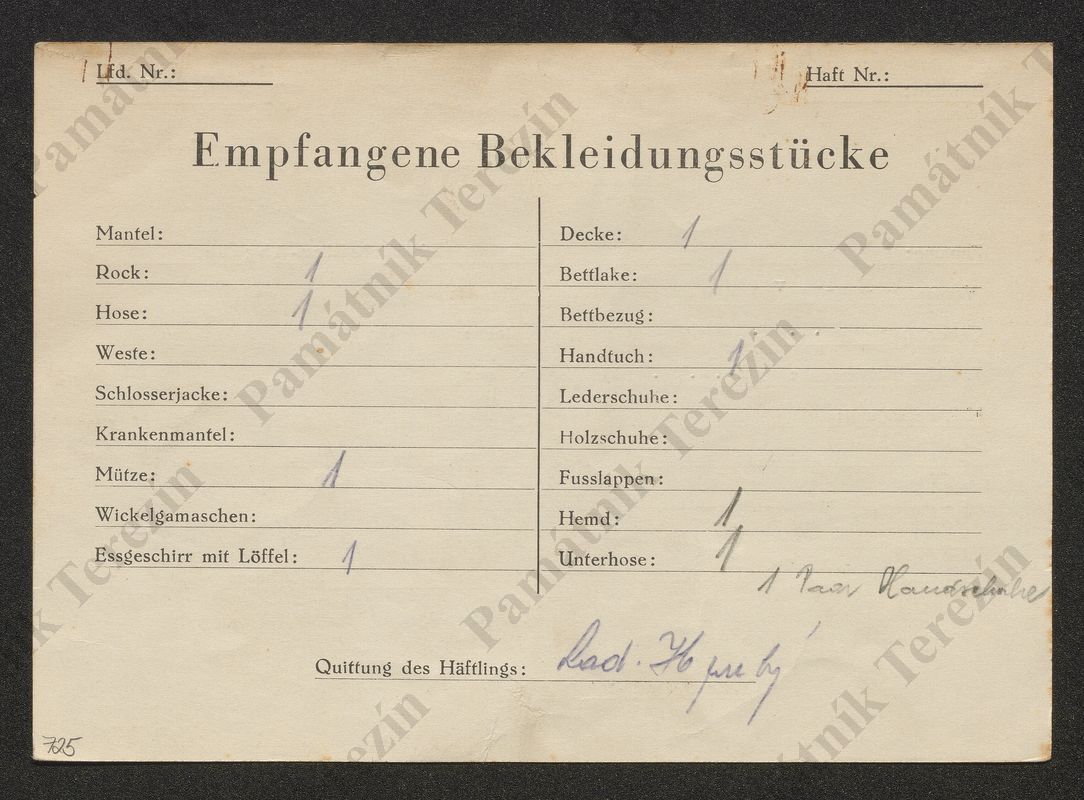 Lfd. Nr.:
Haft Nr.:
Empfangene Bekleidungsstücke
Mantel:
Rock: 1
Hose: 1
Weste:
Schlosserjacke:
Krankenmantel:
Mütze: 1
Wickelgamaschen:
Essgeschirr mit Löffel: 1
Decke: 1
Bettlake: 1
Bettbezug:
Handtuch: 1
Lederschuhe:
Holzschuhe:
Fusslappen:
Hemd: 1
Unterhose: 1
1 Paar Handschuhe
Quittung des Häftlings: Lad.
725
Památník Terezín